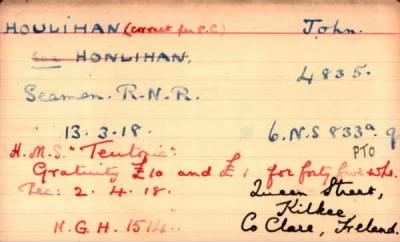 HOULIHAN (correct for P.C) John.
See HONLIHAN.
4835.
Seaman. R.N.R.
13.3.18. 6.N.S 833a. q
H.M.S. "Teutonic". PTO
Gratuity £10 and £1 for forty five wks.
Dec: 2.4.18. Queen Street,
Kilkee,
N.G.H. 1514. Co Clare, Ireland.